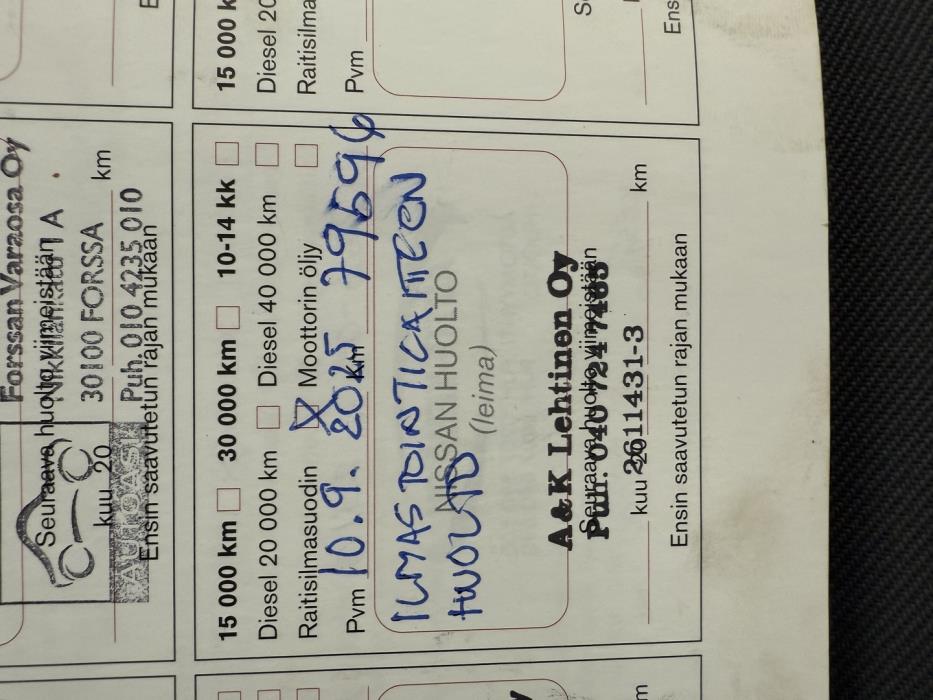 Forssan Varaosa Oy
Seuraava huolto viimeistään
Nikkilänkatu 1 A
30100 FORSSA
kuu 20 km
Puh. 010 4235 010
Ensin saavutetun rajan mukaan
AUTOASI
15 000 km 30 000 km 10-14 kk
Diesel 20 000 km Diesel 40 000 km
Raitisilmasuodin Moottorin öljy
Pvm 10.9. 2025 km 79594
ILMASTOINTILAITTEEN
HUOLTO
NISSAN HUOLTO
(leima)
A&K Lehtinen Oy
Seuraava huolto viimeistään
Puh. 040 724 7465
2611431-3
kuu 20 km
Ensin saavutetun rajan mukaan
15 000 k
Diesel 20
Raitisilma
Pvm
Ens